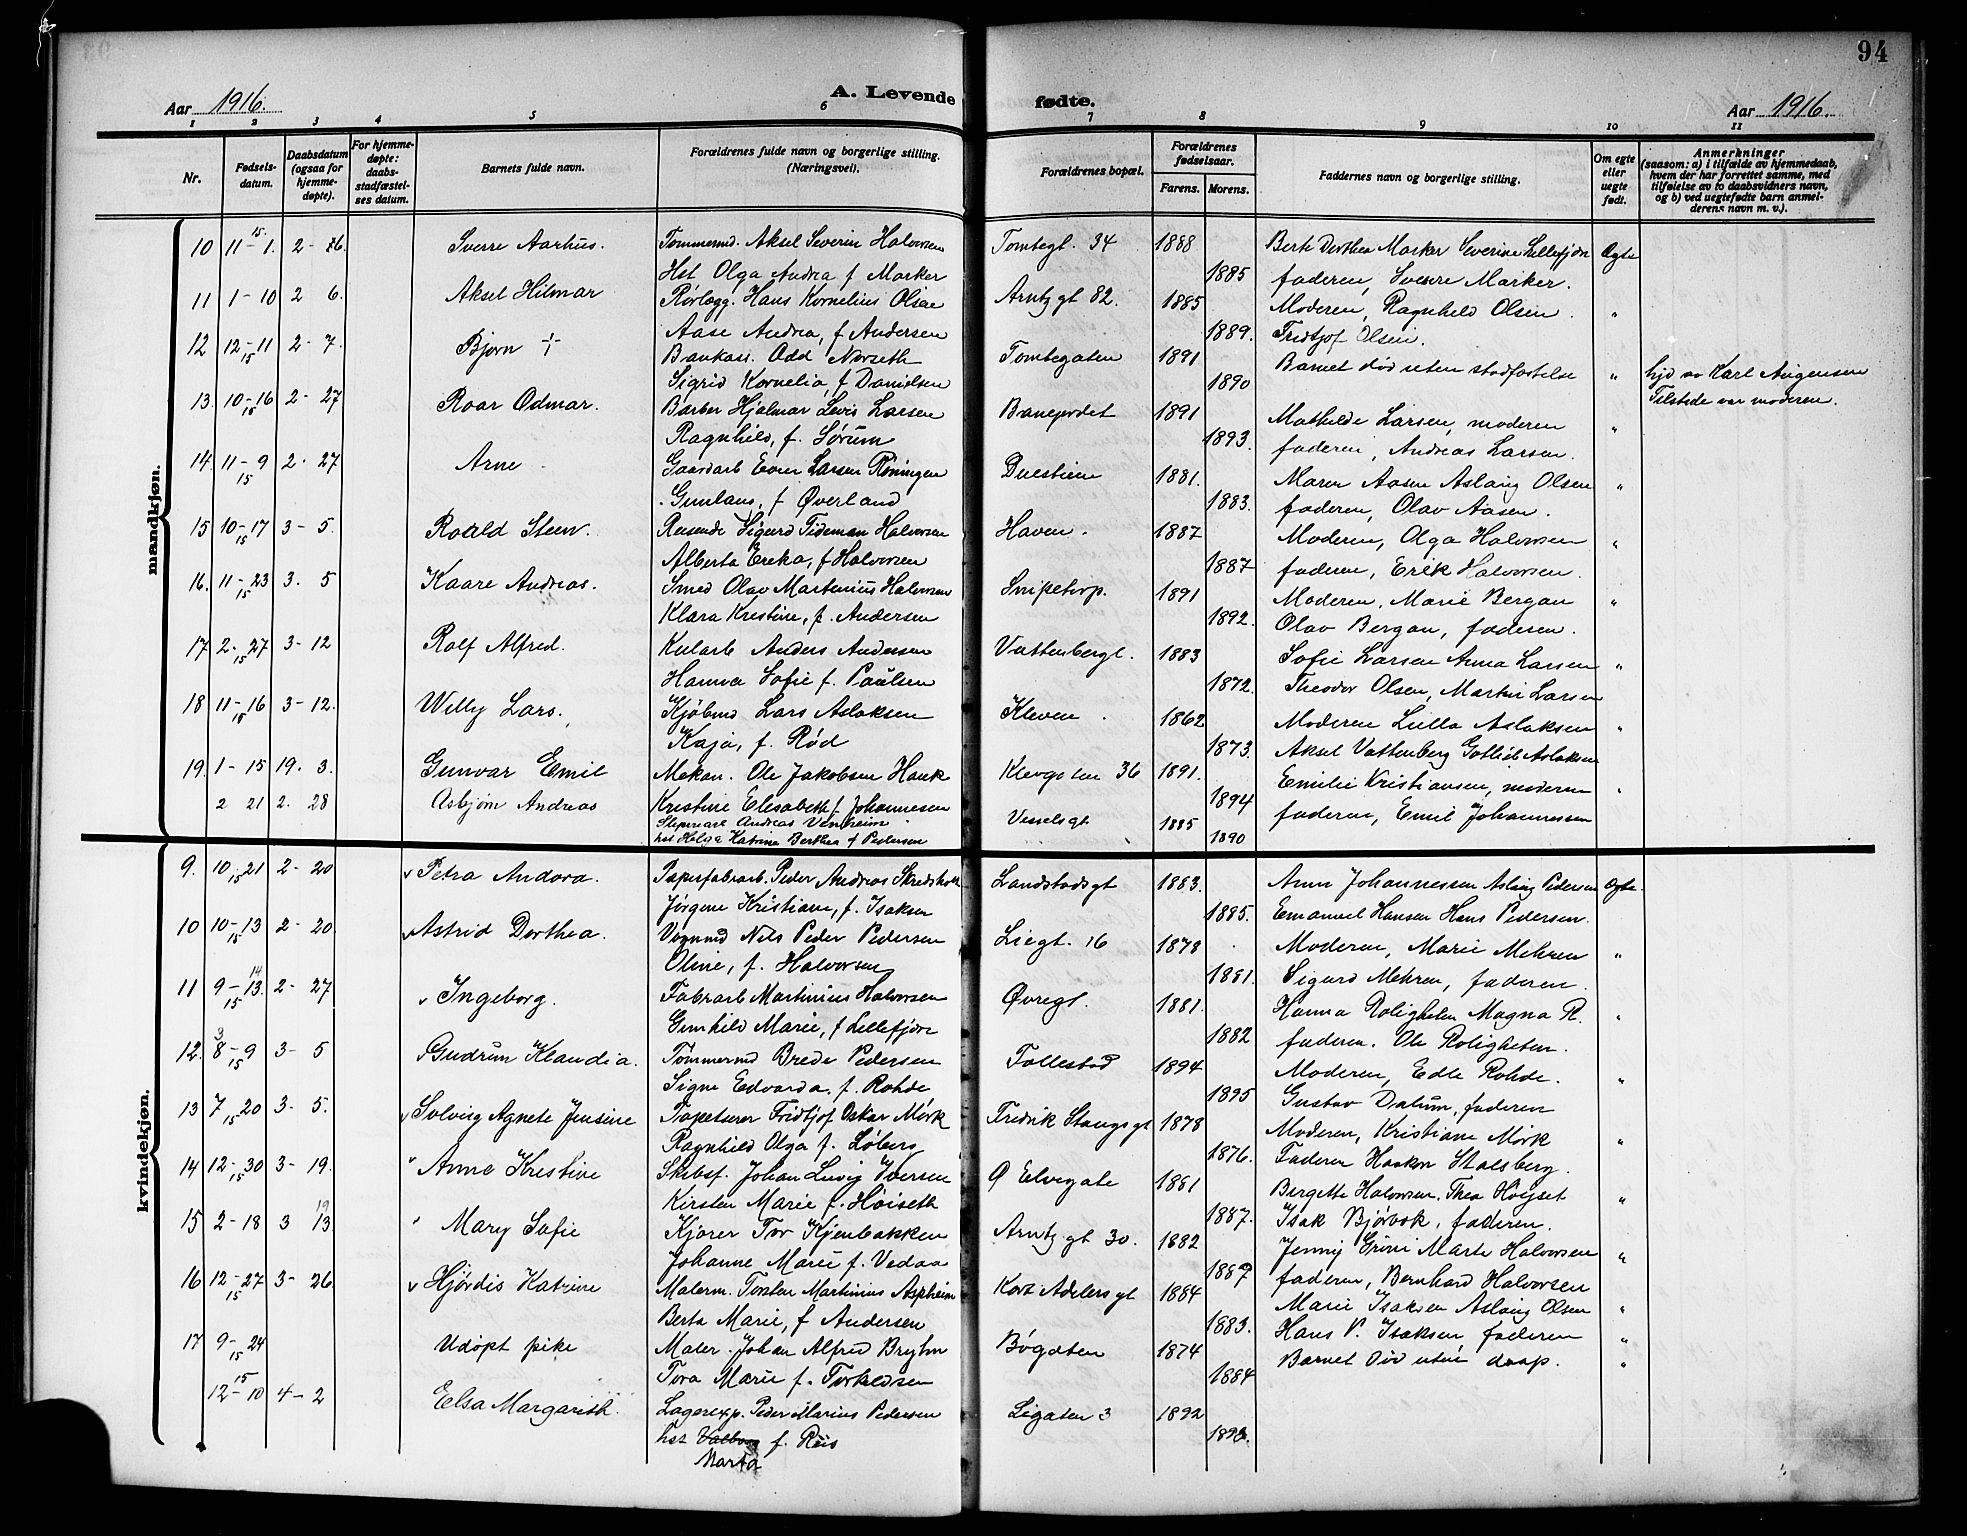 94
Aar 1916. A. Levende fødte. Aar 1916.
1 2 3 4 5 6 7 8 9 10 11
Nr. Fødsels-datum. Daabsdatum (ogsaa for hjemme-døpte). For hjemme-døpte: daabs-stadfæstel-ses datum. Barnets fulde navn. Forældrenes fulde navn og borgerlige stilling. (Næringsvei). Forældrenes bopæl. Forældrenes fødselsaar. Farens. Morens. Faddernes navn og borgerlige stilling. Om egte eller uegte født. Anmerkninger (saasom: a) i tilfælde av hjemmedaab, hvem der har forrettet samme, med tilføielse av to daabsvidners navn, og b) ved uegtefødte barn anmel-derens navn m. v.).
mandkjøn.
10 11-15 1. 2- Sverre Aarhus. Tømmermd. Aksel Severin Halvorsen Tomtegt. 34 1888 Berte Dorthea Marker Severine Lillefjøre Egte
Hst Olga Andrea f Marker 1885 faderen, Sverre Marker.
11 1-10 2 6. Aksel Hilmar Rørlægg. Hans Kornelius Olsen Arntzgt 82. 1885 Moderen, Ragnhild Olsen. "
Aase Andrea, f Andersen 1889. Fridtjof Olsen.
12 12-11 15 2-7. Bjørn + Bankass. Odd Norseth Tomtegaten 1891 Barnet død uten stadfæstelse " hjd av Karl Augensen
Sigrid Kornelia, f Danielsen 1890 Tilstede var moderen.
13. 10-16 15 2-27 Roar Odmar. Barber Hjalmar Levis Larsen 1891 Mathilde Larsen, moderen "
Ragnhild, f. Sørum 1893. faderen, Andreas Larsen.
14. 11-9 15 2-27 Arne Gaardarb Even Larsen Røningen Duestien 1881. Maren Aasen Aslaug Olsen "
Gunlaug, f Øverland 1883. faderen, Olav Aasen.
15 10-17 15 3-5. Roald Steen. Reisende Sigurd Tideman Halvorsen Haven. 1887 Moderen, Olga Halvorsen "
Alberta Ereka, f Halvorsen 1887 faderen, Erik Halvorsen.
16. 11-23 15 3. 5 Kaare Andreas. Smed Olav Martinius Halvorsen Snipetorp. 1891 Moderen, Marie Bergan "
Klara Kristine, f. Andersen 1892. Olav Bergan, faderen.
17 2-27 15 3-12 Rolf Alfred. Kularb Anders Andersen Vattenbergt. 1883 Sofie Larsen Anna Larsen "
Hanna Sofie f. Paulsen 1872. Theodor Olsen, Martin Larsen
18 11-16 15 3-12. Willy Lars. Kjøbmd Lars Aslaksen Kleven. 1862 Moderen Lulla Aslaksen "
Kaja, f. Rød 1873. Aksel Vattenberg Gotlieb Aslaksen
19. 1-15 19. 3. Gunvar Emil Mekan. Ole Jakobsen Hauk Klevgaten 36 1891. Emilie Kristiansen, moderen "
Kristine Elisabeth f. Johannesen 1894 faderen, Emil Johannessen
2 21 2. 28 Asbjørn Andreas Andreas Venheim Vesselsgt 1885
hst Helga Katrine Berthea f Pedersen 1890
kvindekjøn.
9. 10-21 15 2-20 Petra Andora. Papirfabrarb. Peder Andreas Landstadsgt 1883. Anna Johannessen Aslaug Pedersen Egte
Jørgine Kristiane, f. Isaksen 1885. Emanuel Hansen Hans Pedersen.
10 10-13 15 2-20 Astrid Dorthea. Vognmd Nils Peder Pedersen Liegt. 16 1878 Moderen, Marie Mehren "
Oline, f. Halvorsen 1881. Sigurd Mehren, faderen.
11 9-13. 14 15 2-27 Ingeborg. Fabrarb Martinius Halvorsen Øvregt. 1881. Hanna Roligheten Magna R. "
Gunhild Marie, f Lillefjøre 1882 faderen. Ole Roligheten.
12. 3 8-9 15 3-5 Gudrun Klandia. Tømmermd Brede Pedersen Follestad 1894 Moderen, Edle Rohde. "
Signe Edvarda f. Rohde 1895 Gustav Dalum, faderen
13 7-20 15 3-5. Solveig Agnete Jensine Tapetserer Fridtjof Oskar Mørk Fredrik Stangsgt 1878 Moderen, Kristiane Mørk "
Ragnhild Olga f. Løberg 1876. Faderen Haakon Stalsberg.
14 12-30 15 3-19. Anne Kristine Skibsf. Johan Ludvig Iversen Ø Elvegate 1881 Bergette Halvorsen. Thea Høiset "
Kirsten Marie f. Høiseth 1887. Isak Bjørbæk, faderen.
15 2-18 3 13 19 Mary Sofie Kjører Tor Kjenbakken Arntzgt 30. 1882 Jenny Grini Marte Halvorsen "
Johanne Marie f. Vedaa 1887 faderen, Bernhard Halvorsen
16 12-27 15 3-26 Hjørdis Katrine Malerm. Torsten Martinius Aspheim Kort Adelersgt 1884 Marie Isaksen Aslaug Olsen "
Berta Marie, f Andersen 1883. Hans P. Isaksen faderen
17 9-24 15 Udøpt pike Maler. Johan Alfred Bryhn Bøgaten 1874 Barnet død uten daap. "
Tora Marie f. Torkildsen 1884
12-10 15 4-2 Elsa Margareth. Lagerexp. Peder Marius Pedersen Ligaten 3 1892
hst Valborg f. Reis
Marta